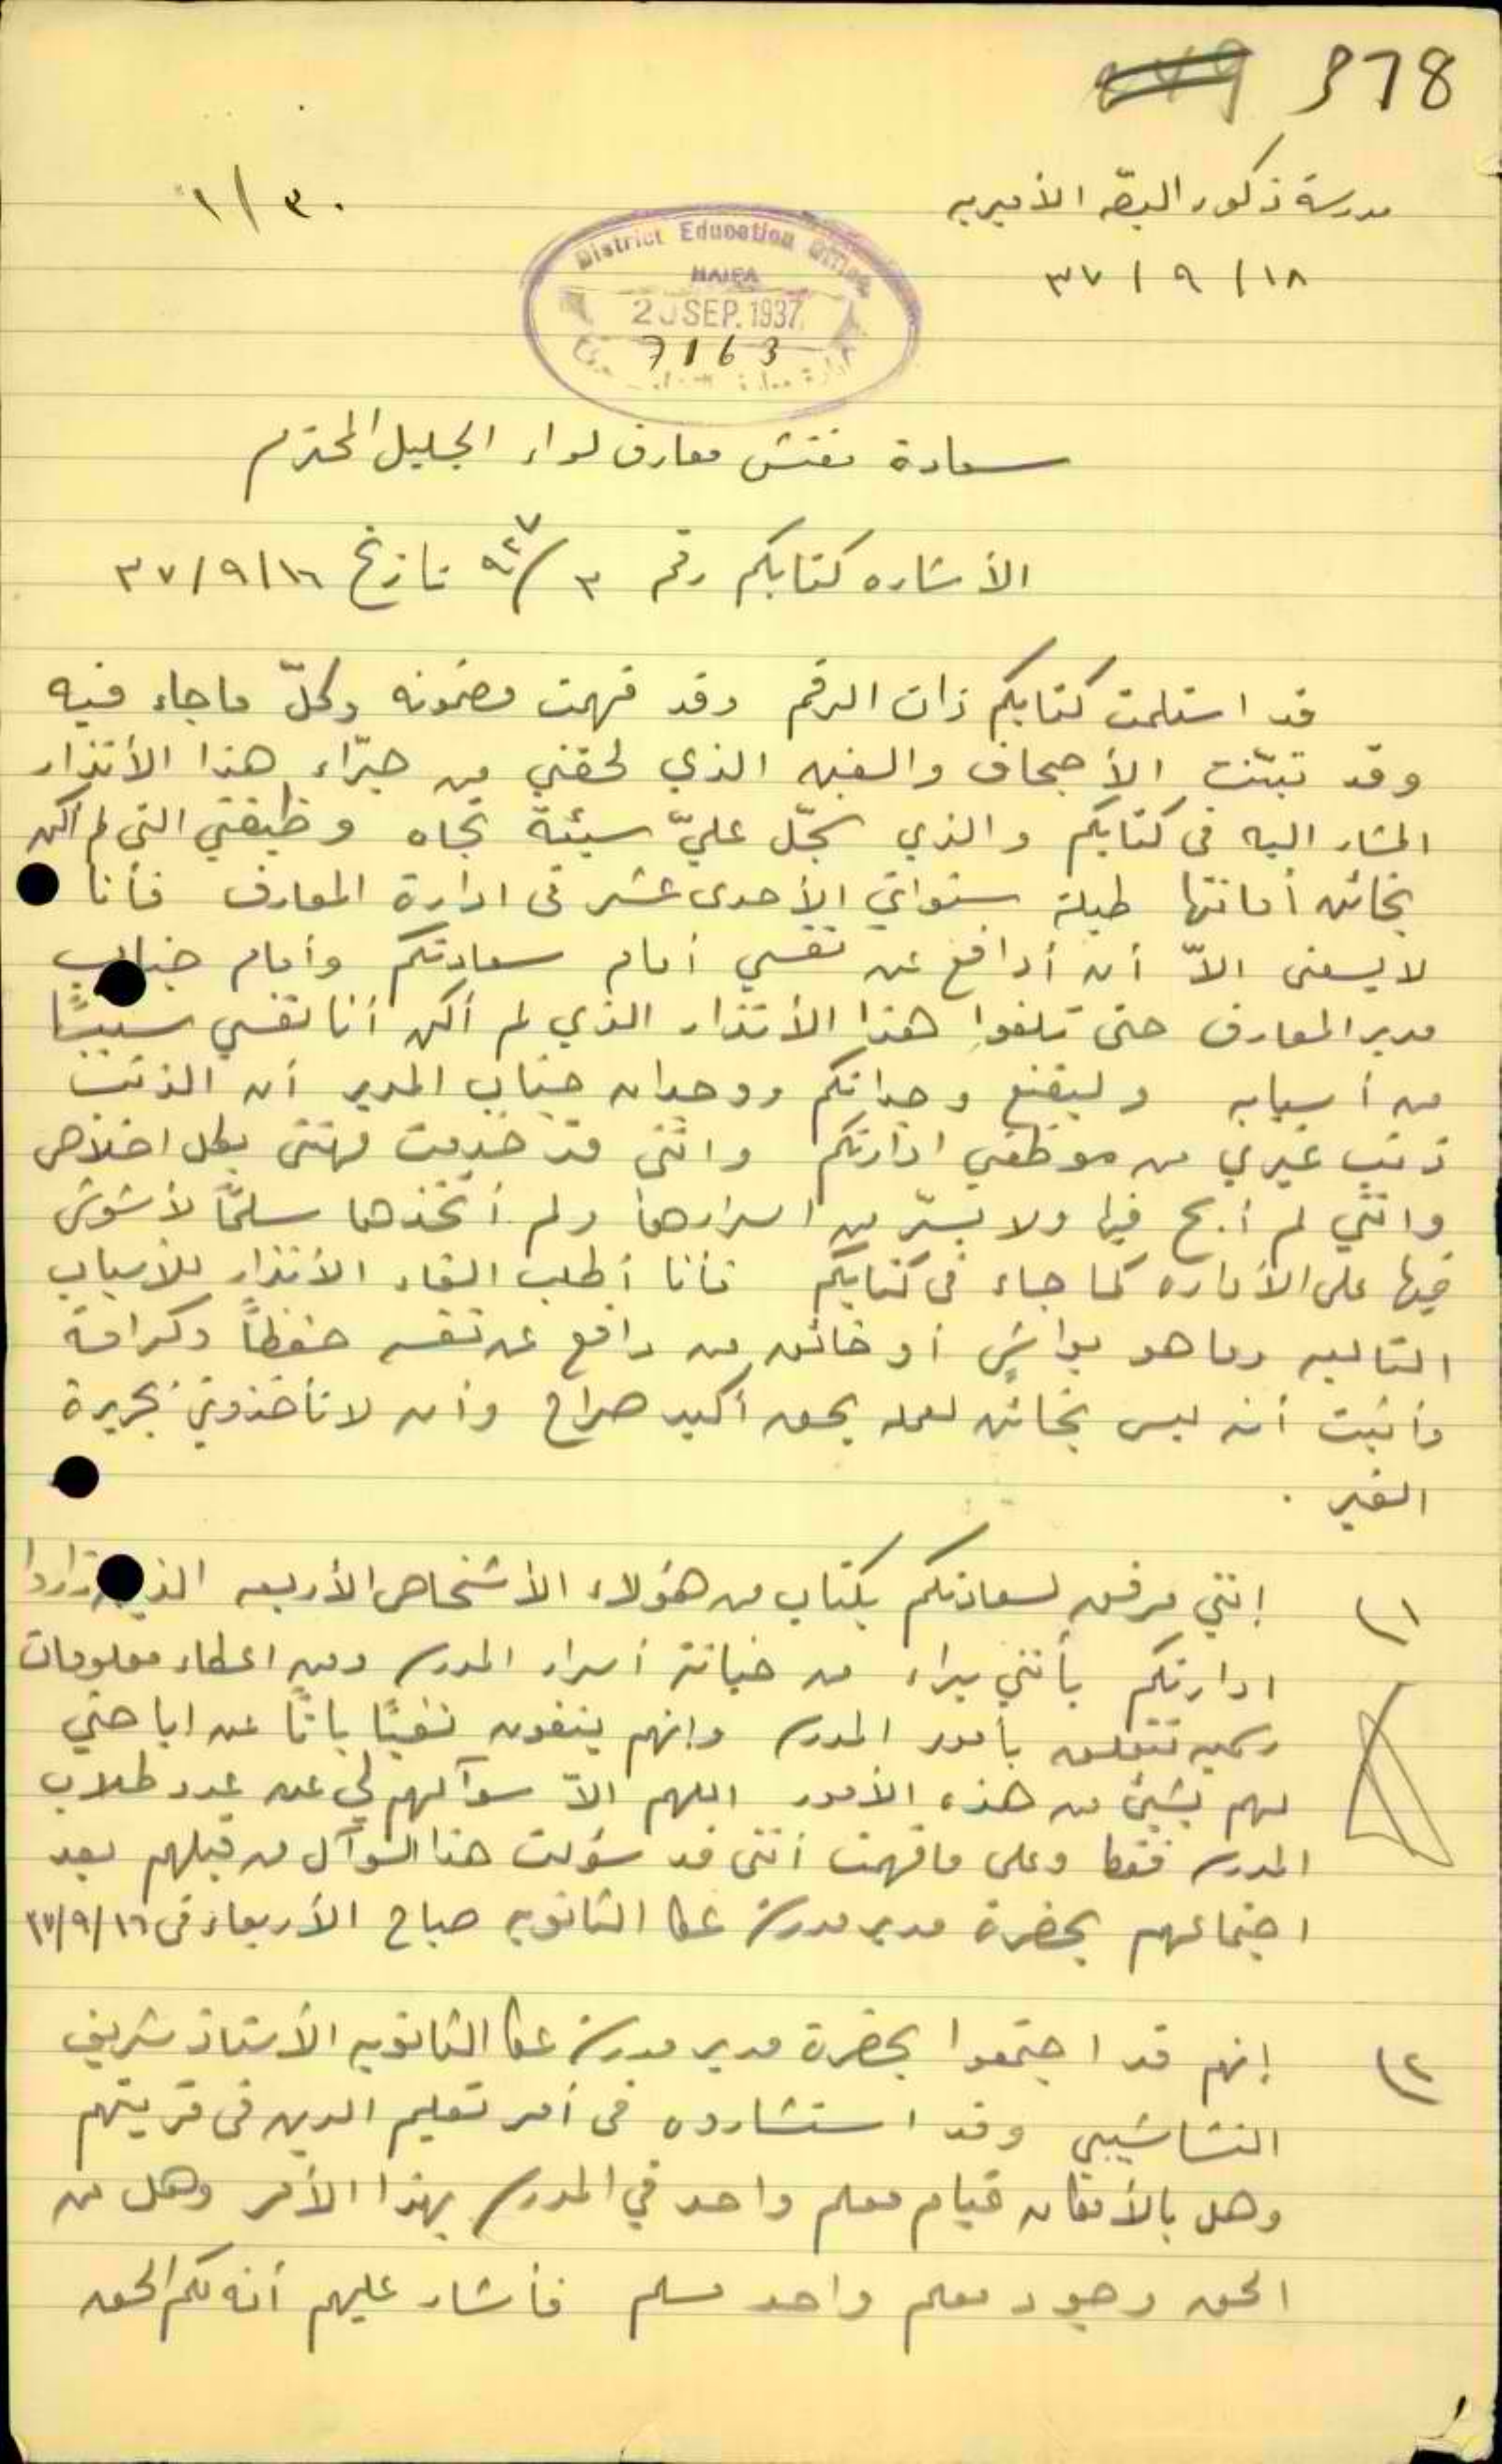 378
مدرسة ذكور البصّه الأميريه
٣٠/١
١٨/٩/٣٧
District Education Office
HAIFA
20 SEP. 1937
7163
سعادة مفتش معارف لواء الجليل المحترم
الأشاره كتابكم رقم ٣/٩٢٧ تاريخ ١٦/٩/٣٧
قد استلمت كتابكم ذات الرقم وقد فهمت مضمونه وكلّ ما جاء فيه
وقد تبيّنت الأجحاف والغبن الذي لحقني من جرّاء هذا الأنذار
المشار اليه في كتابكم والذي سجّل عليّ سيئة تجاه وظيفتي التي لم أكن
بخائن أمانتها طيلة سنواتي الأحدى عشر في ادارة المعارف فأنا
لا يسعني الاّ أن أدافع عن نفسي أمام سعادتكم وأمام جناب
مدير المعارف حتى تلغوا هذا الأنذار الذي لم أكن أنا نفسي سببًا
من أسبابه وليقنع وجدانكم ووجدان جناب المدير أن الذنب
ذنب غيري من موظفي ادارتكم وانني قد خدمت مهنتي بكل اخلاص
وانني لم أبح فيها ولا بسرّ من اسرارها ولم أتخذها سلمًا لأشوش
فيها على الأداره كما جاء في كتابكم فأنا أطلب الغاء الأنذار للأسباب
التاليه وما هو بواشٍ أو خائن من دافع عن نفسه حفظاً وكرامة
وأثبت أنه ليس بخائن لعمله بحق أكيد صراح وأن لا تأخذوني بجريرة
الغير .
١) إنني مرفق لسعادتكم بكتاب من هؤلاء الأشخاص الأربعه الذين زاروا
ادارتكم بأنني براء من خيانة أسرار المدرسة ومن اعطاء معلومات
رسميه تتعلق بأمور المدرسة وانهم ينفون نفيًا باتًا عن اباحتي
لهم بشيئ من هذه الأمور اللهم الاّ سوآلهم لي عن عدد طلاب
المدرسة فقط وعلى ما فهمت أنني قد سؤلت هذا السوآل من قبلهم بعد
اجتماعهم بحضرة مدير مدرسة عكا الثانويه صباح الأربعاء في ١٦/٩/٣٧
٢) إنهم قد اجتمعوا بحضرة مدير مدرسة عكا الثانويه الأستاذ شريف
النشاشيبي وقد استشاروه في أمر تعليم الدين في قريتهم
وهل بالأمكان قيام معلم واحد في المدرسة بهذا الأمر وهل من
الحق وجود معلم واحد مسلم فأشار عليهم أنه لكم الحق